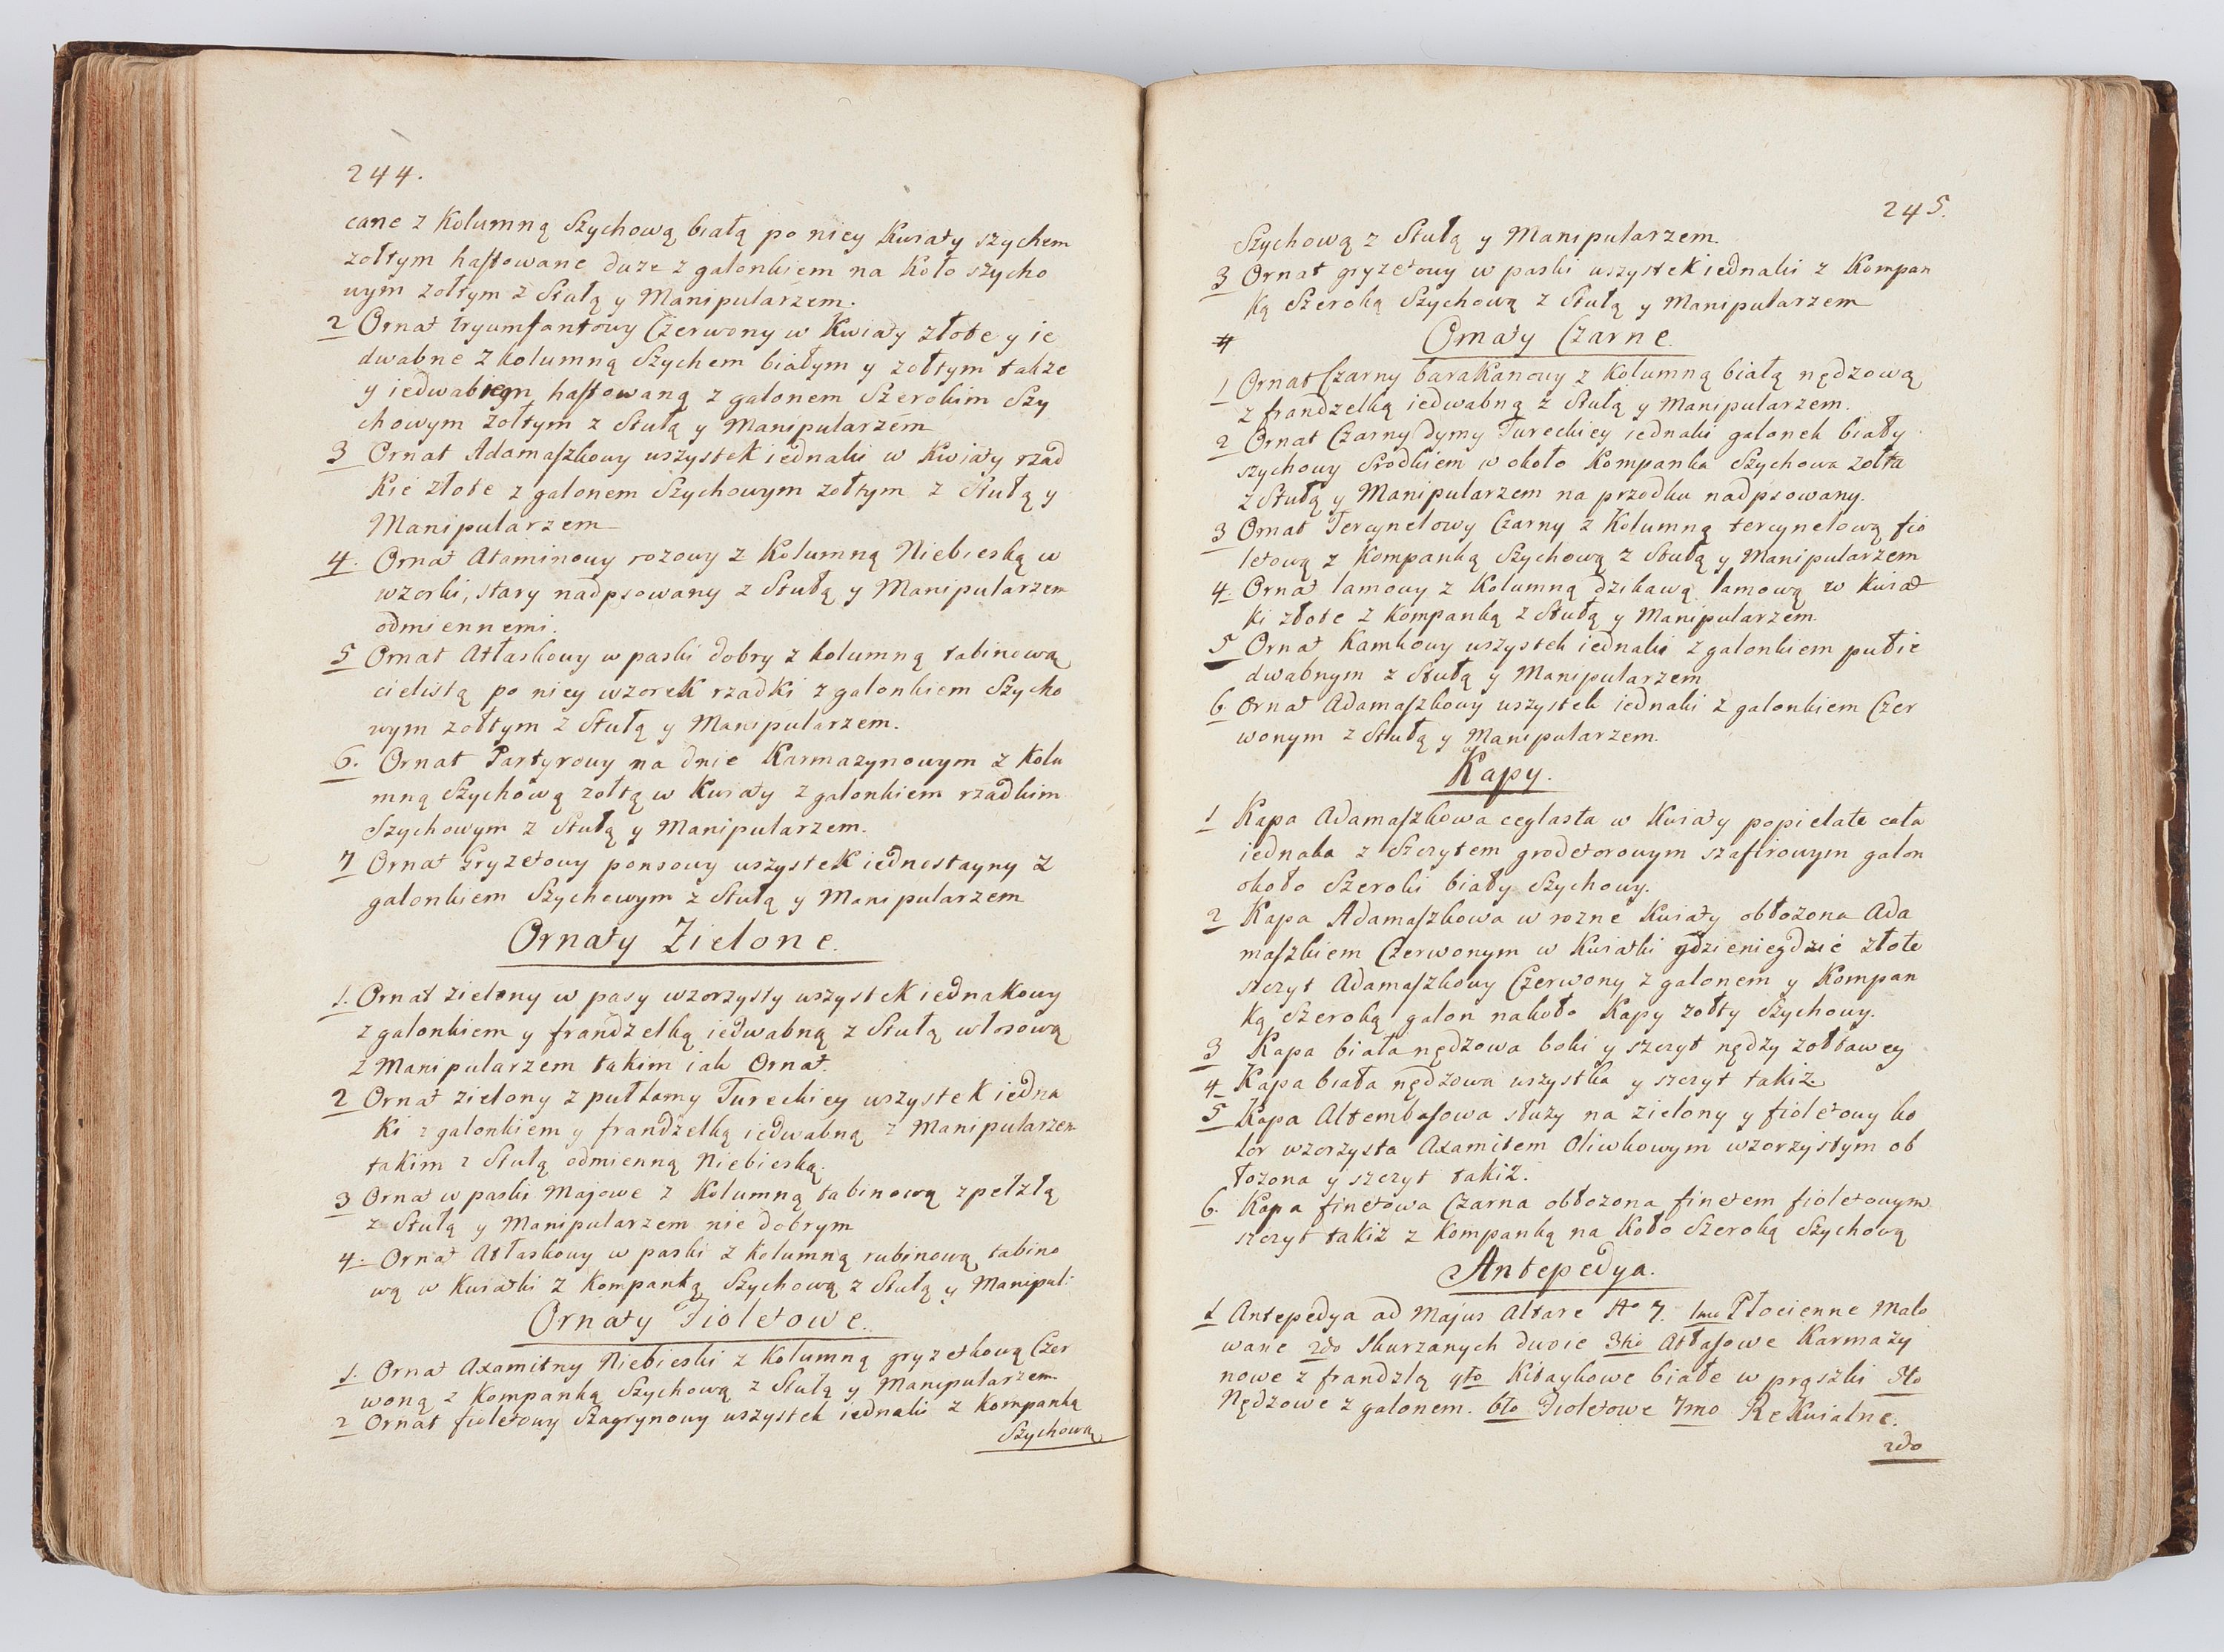 244.
cane z Kolumną Szychową białą po niey Kwiaty szychem
zołtym haftowane duze z galonkiem na koło szycho
wym zołtym z Stułą y Manipularzem.
2 Ornat tryumfantowy Czerwony w Kwiaty złote y ie
dwabne z kolumną Szychem białym y zołtym takze
y iedwabiem haftowaną z galonem Szerokim Szy
chowym zołtym z Stułą y Manipularzem
3 Ornat Adamaszkowy wszystek iednaki w Kwiaty rzad
kie złote z galonem Szychowym zołtym z Stułą y
Manipularzem
4. Ornat Ataminowy rozowy z Kolumną Niebieską w
wzorki, stary nadpsowany z Stułą y Manipularzem
odmiennemi.
5 Ornat Atłaskowy w paski dobry z kolumną tabinową
cielistą po niey wzorek rzadki z galonkiem Szycho
wym zołtym z Stułą y Manipularzem.
6. Ornat Partyrowy na dnie Karmazynowym z Kolu
mną Szychową zołtą w Kwiaty z galonkiem rzadkim
Szychowym z Stułą y Manipularzem.
7 Ornat Gryzetowy ponsowy wszystek iednostayny z
galonkiem Szychowym z Stułą y Manipularzem
Ornaty Zielone.
1. Ornat zielony w pasy wzorzysty wszystek iednakowy
z galonkiem y frandzelką iedwabną z Stułą włosową
z Manipularzem takim iak Ornat.
2 Ornat zielony z pułlamy Tureckiey wszystek iedna
ki z galonkiem y frandzelką iedwabną z Manipularzem
takim z Stułą odmienną Niebieską.
3 Ornat w paski Majowe z Kolumną tabinową zpełzłą
z Stułą y Manipularzem nie dobrym
4. Ornat Atłaskowy w paski z kolumną rubinową tabino
wą w Kwiatki z Kompanką Szychową z Stułą y Manipul:
Ornaty Fioletowe.
1. Ornat Axamitny Niebieski z Kolumną gryzetkową Czer
woną z Kompanką Szychową z Stułą y Manipularzem
2 Ornat fioletowy Szagrynowy wszystek iednaki z Kompanką
Szychową
245.
Szychową z Stułą y Manipularzem.
3 Ornat gryzetowy w paski wszystek iednaki z Kompan
ką Szeroką Szychową z Stułą y Manipularzem
# Ornaty Czarne.
1 Ornat Czarny barakanowy z Kolumną białą nędzową
z frandzelką iedwabną z Stułą y Manipularzem.
2 Ornat Czarny dymy Tureckiey iednaki galonek biały
szychowy Srodkiem w około Kompanka Szychowa zołta
z Stułą y Manipularzem na przodku nadpsowany.
3 Ornat Tercynelowy Czarny z Kolumną tercynelową fio
letową z Kompanką Szychową z Stułą y Manipularzem
4. Ornat lamowy z Kolumną dzikawą lamową w kwiat
ki złote z kompanką z Stułą y Manipularzem.
5 Ornat Kamkowy wszystek iednaki z galonkiem pułie
dwabnym z Stułą y Manipularzem
6. Ornat Adamaszkowy wszystek iednaki z galonkiem Czer
wonym z Stułą y Manipularzem.
Kapy.
1 Kapa Adamaszkowa ceglasta w Kwiaty popielate cała
iednaka z Szczytem grodetorowym szafirowym galon
około Szeroki biały Szychowy.
2 Kapa Adamaszkowa w rozne Kwiaty obłozona Ada
maszkiem Czerwonym w Kwiatki gdzieniegdzie złote
szczyt Adamaszkowy Czerwony z galonem y Kompan
ką Szeroką galon nakoło Kapy zołty Szychowy.
3 Kapa biała nędzowa boki y szczyt nędzy zołtawey
4 Kapa biała nędzowa wszystka y szczyt takiz.
5 Kapa Altembasowa słuzy na zielony y fioletowy ko
lor wzorzysta Axamitem Oliwkowym wzorzystym ob
łozona y szczyt takiz.
6. Kapa finetowa Czarna obłozona finetem fioletowym
szczyt takiz z Kompanką na koło Szeroką Szychową
Antepedya.
1 Antepedya ad Majus Altare No 7. 1mo Płocienne Malo
wane 2do Skurzanych dwoie 3tio Atłasowe Karmazy
nowe z frandzlą 4to Kitaykowe białe w prąszki 5to
Nędzowe z galonem. 6to Fioletowe 7mo ReKwialne.
2do